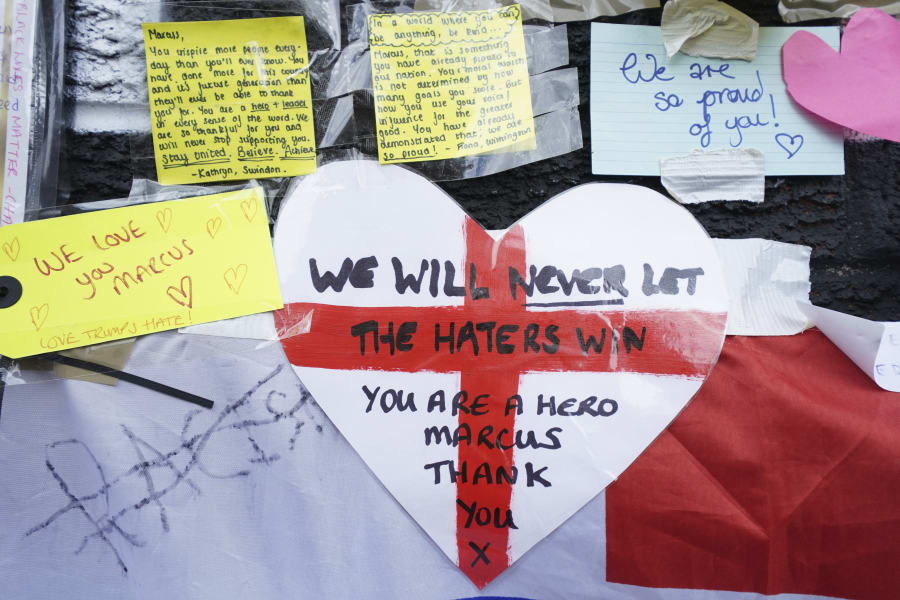 Marcus,
You inspire more people every-
day than you'll ever know. You
have done more for this country
and its future generation than
they'll ever be able to thank
you for. You are a hero + leader
in every sense of the word. We
are so thankful for you and
will never stop supporting you.
Stay united. Believe. Achieve
- Kathryn, Swindon.
In a world where you can
be anything, be kind...
Marcus, that is something
you have already proved to
our nation. Your moral worth
is not determined by how
many goals you score. But
how you use your voice/
influence for the greater
good. You have already
demonstrated that; we are
so proud! - Fiona, Withington
We are
so proud
of you!
BLACK LIVES
MATTER
WE LOVE
you MARCUS
LOVE TRUMPS HATE!
WE WILL NEVER LET
THE HATERS WIN
YOU ARE A HERO
MARCUS
THANK
YOU
X